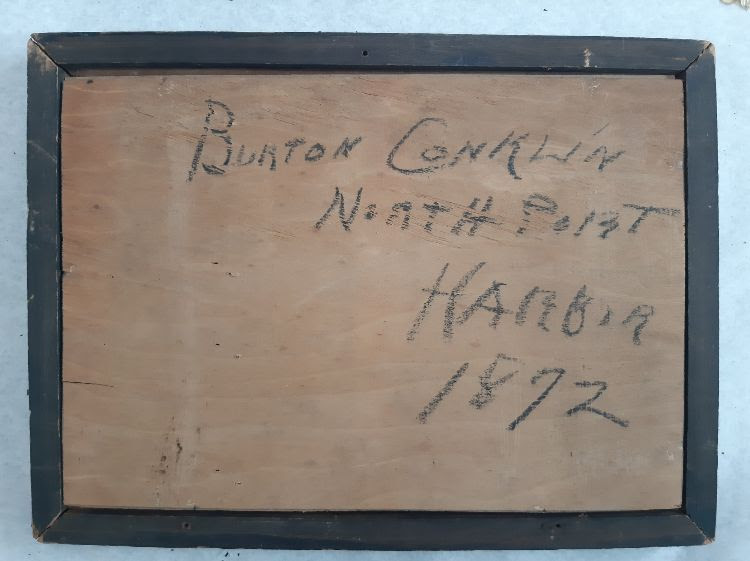 BURTON CONKLIN
NORTH POINT
HARBOR
1872